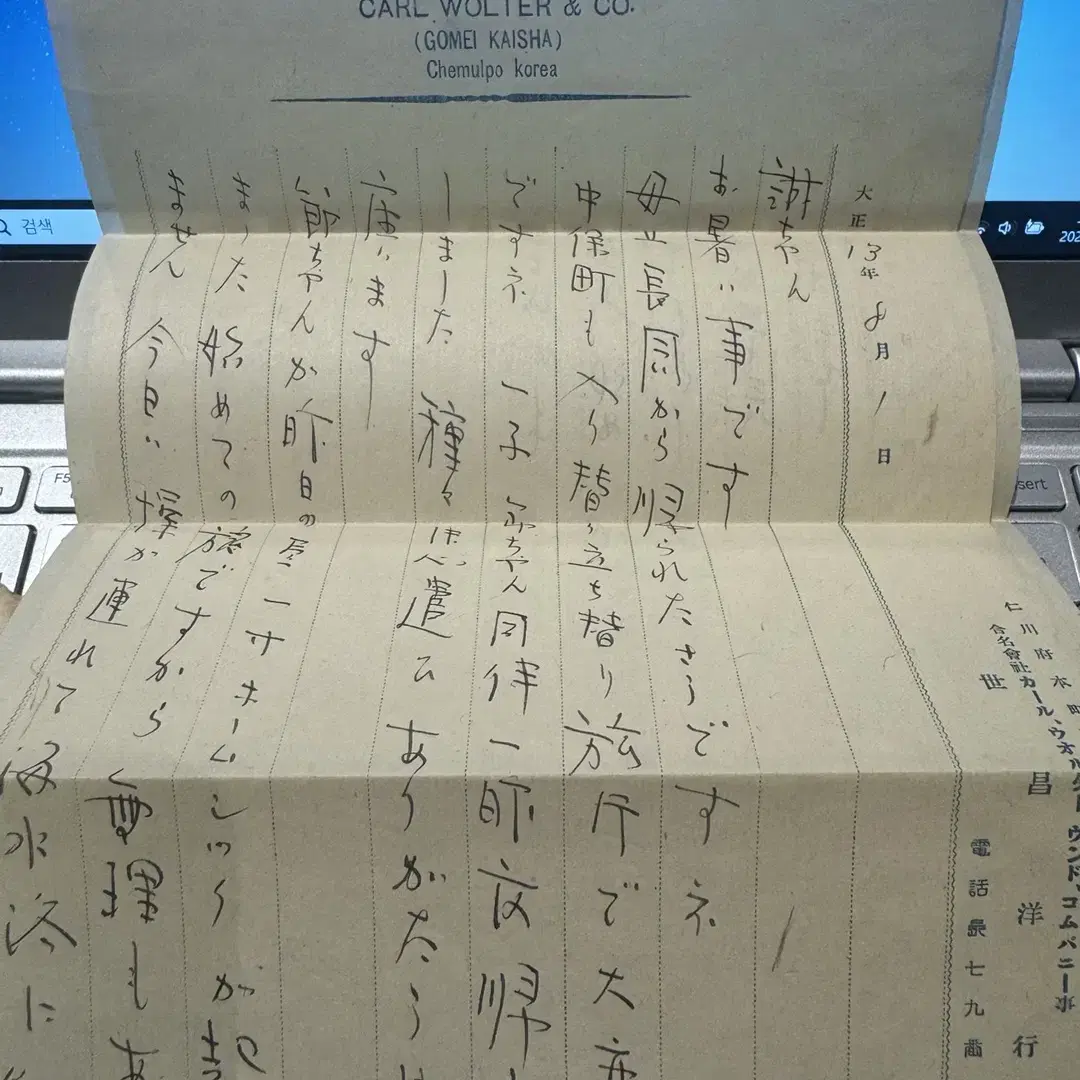 CARL WOLTER & CO.
(GOMEI KAISHA)
Chemulpo korea
仁川府本町
合名會社カール、ウオルター ウンド、コムパニーホ
世昌洋行
電話長七九番
大正13年8月1日
謝ちゃん
お暑い事です
母上長岡から帰られたさうですネ
中保町も入り替り立ち替り旅行で大変
ですネ 一子 ちゃん同伴一昨夜帰
しました 種々御心遣ひありがたう
座います
節ちゃんが昨日の ホームしつくが起
ました 始めての旅ですから無理もあ
ません 今日は 操が連れて海水浴に
검색